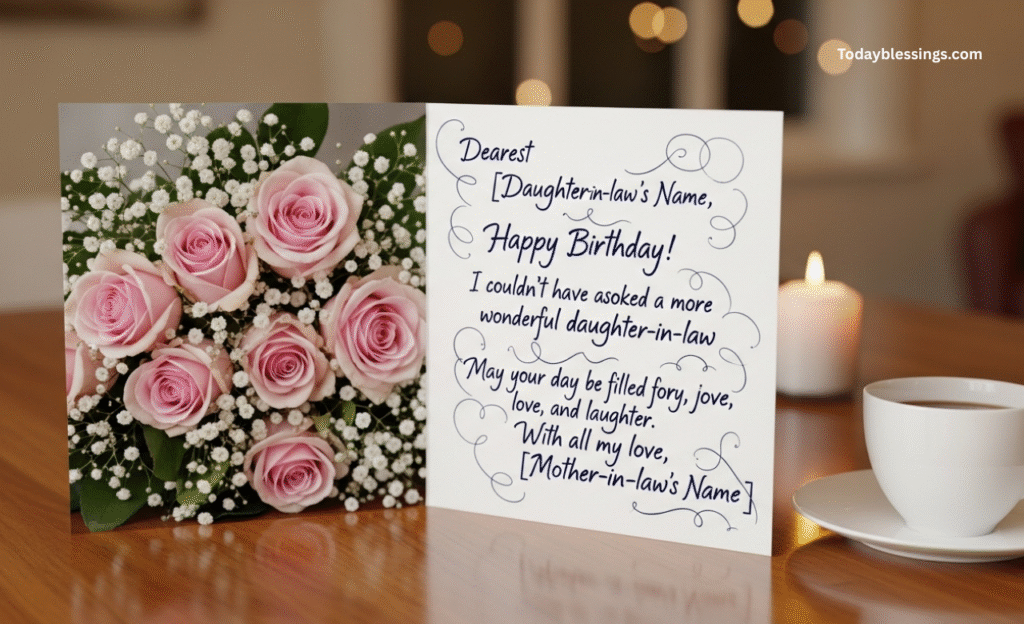 Todayblessings.com
Dearest
[Daughter-in-law's Name,
Happy Birthday!
I couldn't have asoked a more
wonderful daughter-in-law
May your day be filled fory, jove,
love, and laughter.
With all my love,
[Mother-in-law's Name]